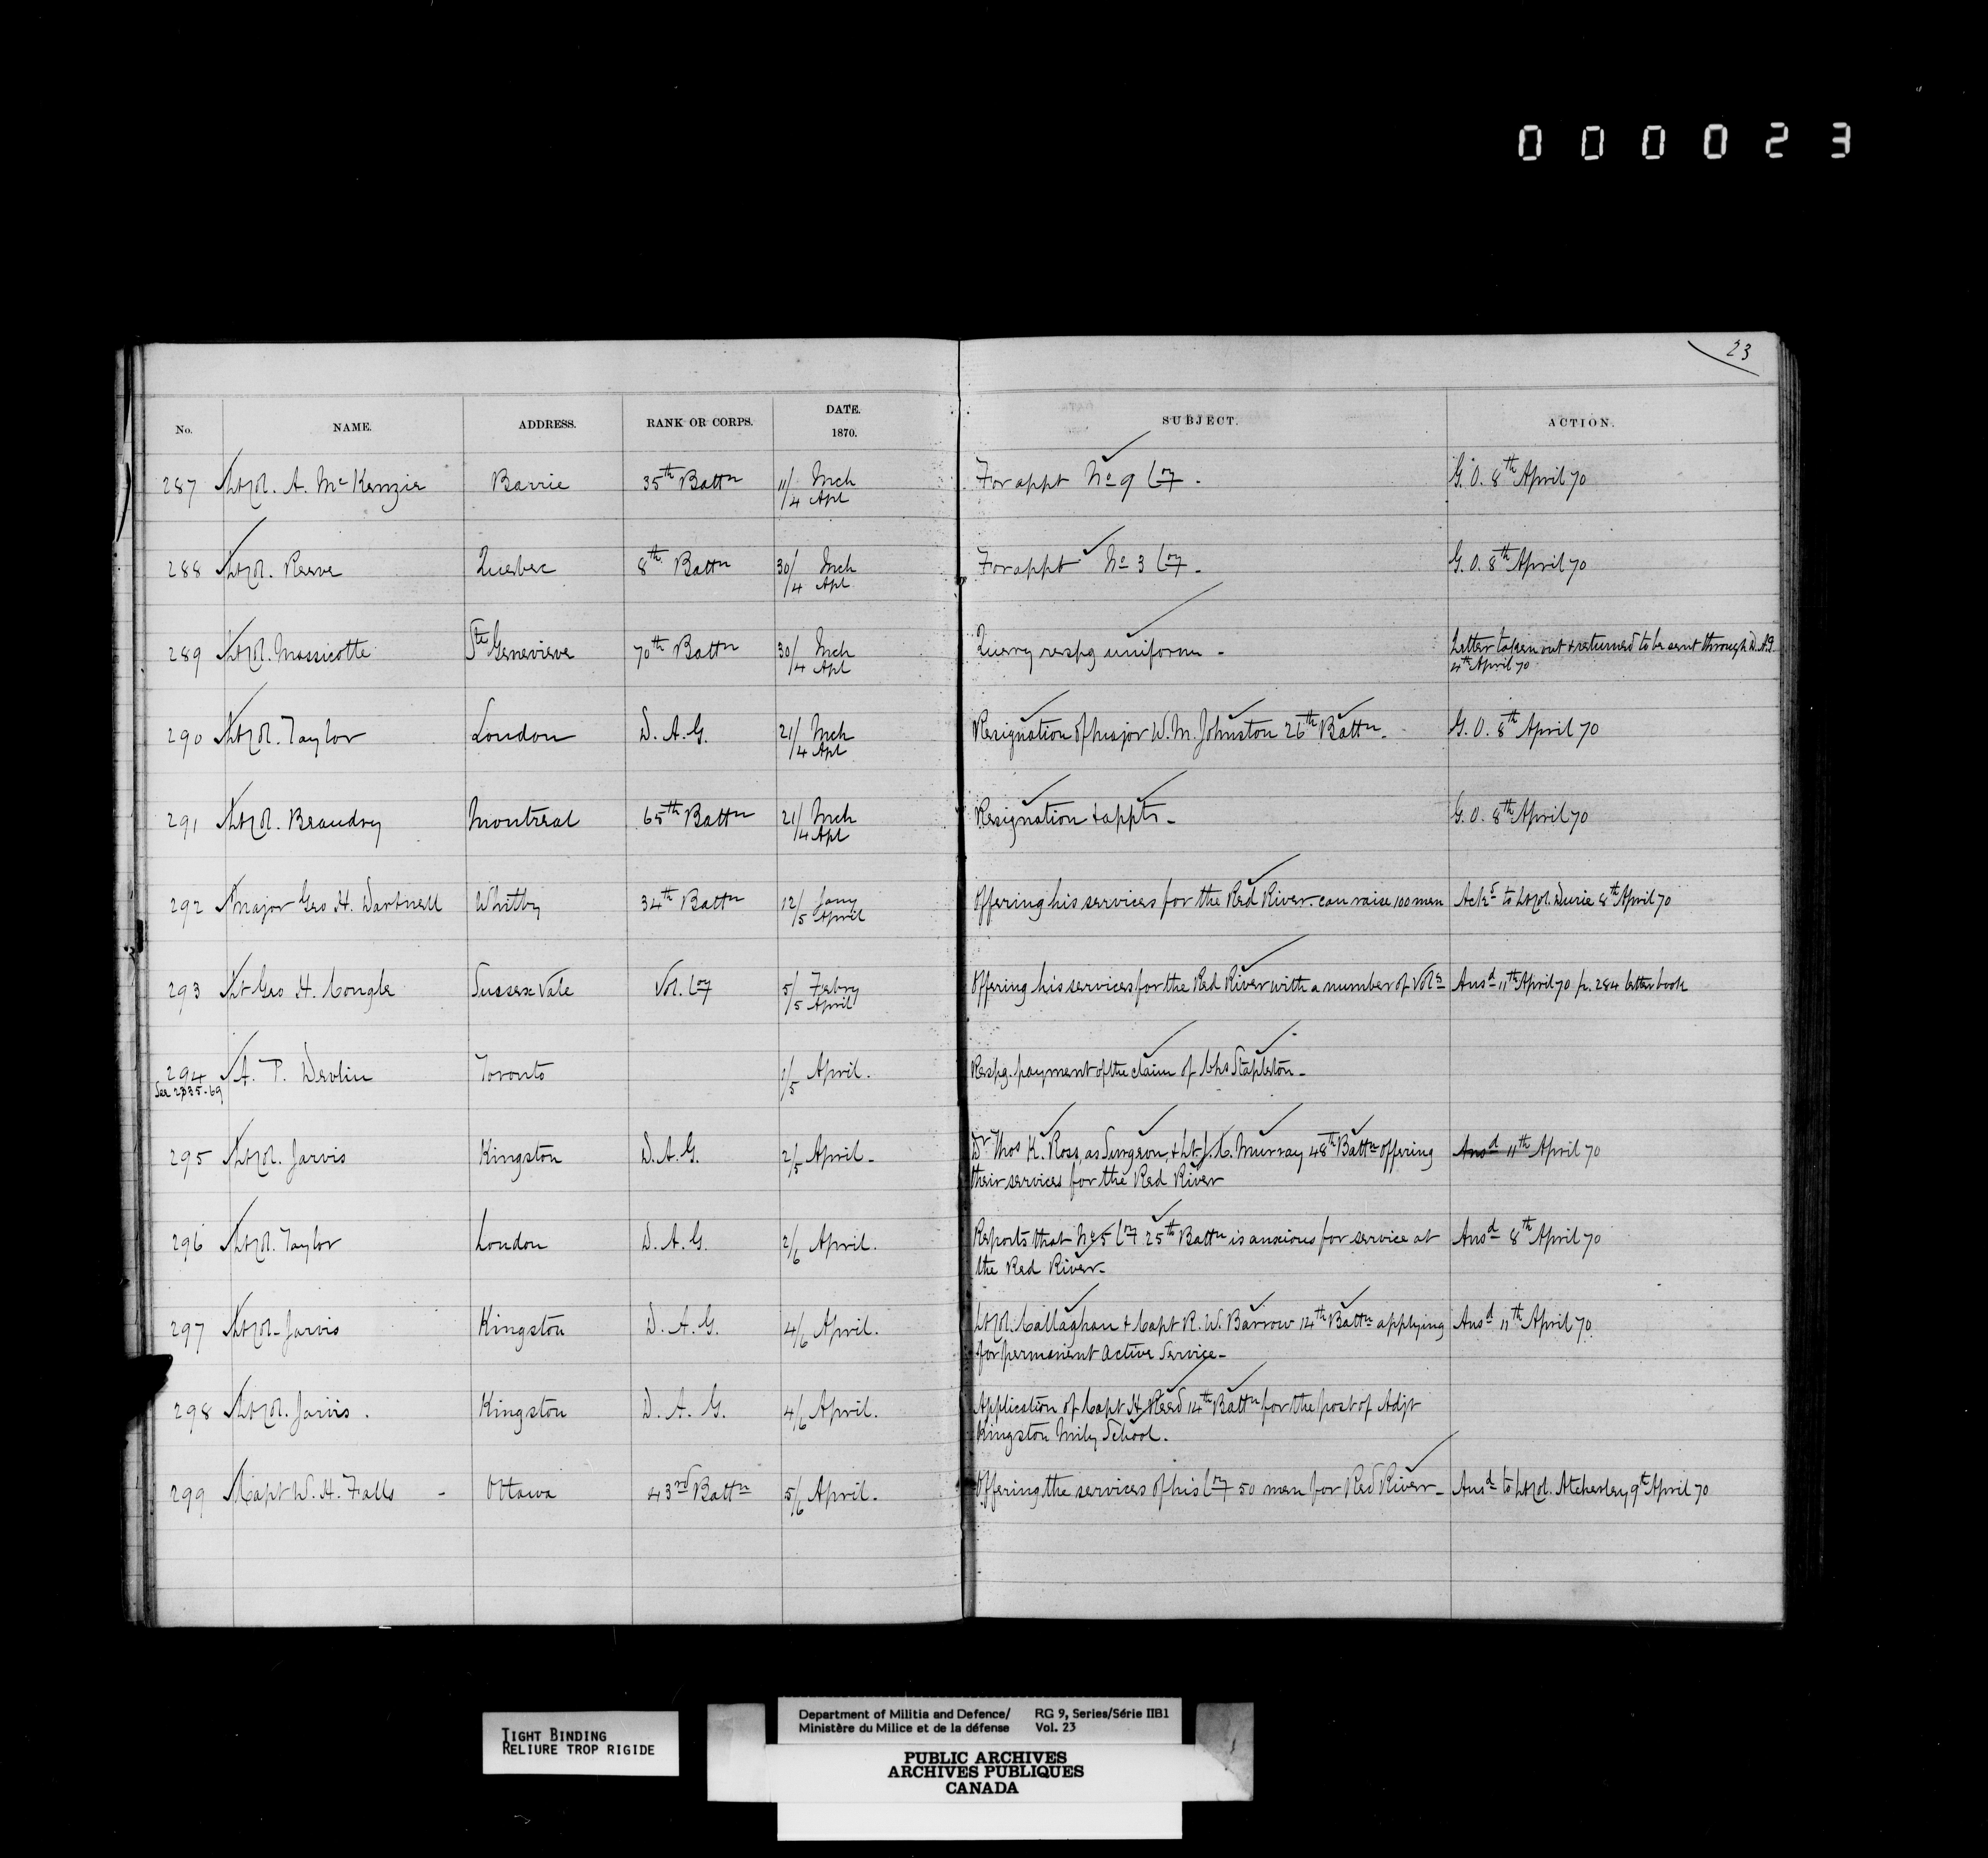 000023
23
No. NAME. ADDRESS. RANK OR CORPS. DATE. 1870. SUBJECT. ACTION.
287 Lt Col. A. McKenzie Barrie 35th Battn 11/4 Mch Apl For appt No 9 Coy. G. O. 8th April 70
288 Lt Col. Reeve Quebec 8th Battn 30/4 Mch Apl For appt No 3 Coy. G. O. 8th April 70
289 Lt Col. Massicotte Ste Genevieve 70th Battn 30/4 Mch Apl Query respg uniform - Letter taken out & returned to be sent through D.A.G
4th April 70
290 Lt Col. Taylor London D. A. G. 21/4 Mch Apl Resignation of Major W. M. Johnston 26th Battn. G. O. 8th April 70
291 Lt Col. Beaudry Montreal 65th Battn 21/4 Mch Apl Resignation & appts - G. O. 8th April 70
292 Major Geo H. Dartnell Whitby 34th Battn 12/5 Jany April Offering his services for the Red River. can raise 100 men Ackd to Lt Col. Durie 8th April 70
293 Lt Geo H. Congle Sussex Vale Vol. Coy 5/5 Febry April Offering his services for the Red River with a number of Vols Ansd 11th April 70 p. 284 letter book
294 A. P. Devlin Toronto 1/5 April. Respg. payment of the claim of Chs Stapleton -
See 2335-69
295 Lt Col. Jarvis Kingston D. A. G. 2/5 April - Dr Thos K. Ross, as Surgeon, & Lt J. C. Murray 48th Battn offering Ansd 11th April 70
their services for the Red River
296 Lt Col. Taylor London D. A. G. 2/6 April. Reports that No 5 Coy 25th Battn is anxious for service at Ansd 8th April 70
the Red River -
297 Lt Col - Jarvis Kingston D. A. G. 4/6 April. Lt Col. Callaghan & Capt R. W. Barrow 14th Battn applying Ansd 11th April 70.
for permanent Active Service -
298 Lt Col. Jarvis. Kingston D. A. G. 4/6 April. Application of Capt H. Reed 14th Battn for the post of Adjt
Kingston Mily School.
299 Capt W. H. Falls - Ottawa 43rd Battn 5/6 April. Offering the services of his Coy 50 men for Red River - Ansd to Lt Col. Atcherley 9th April 70
TIGHT BINDING
RELIURE TROP RIGIDE
Department of Militia and Defence/ RG 9, Series/Série IIB1
Ministère du Milice et de la défense Vol. 23
PUBLIC ARCHIVES
ARCHIVES PUBLIQUES
CANADA